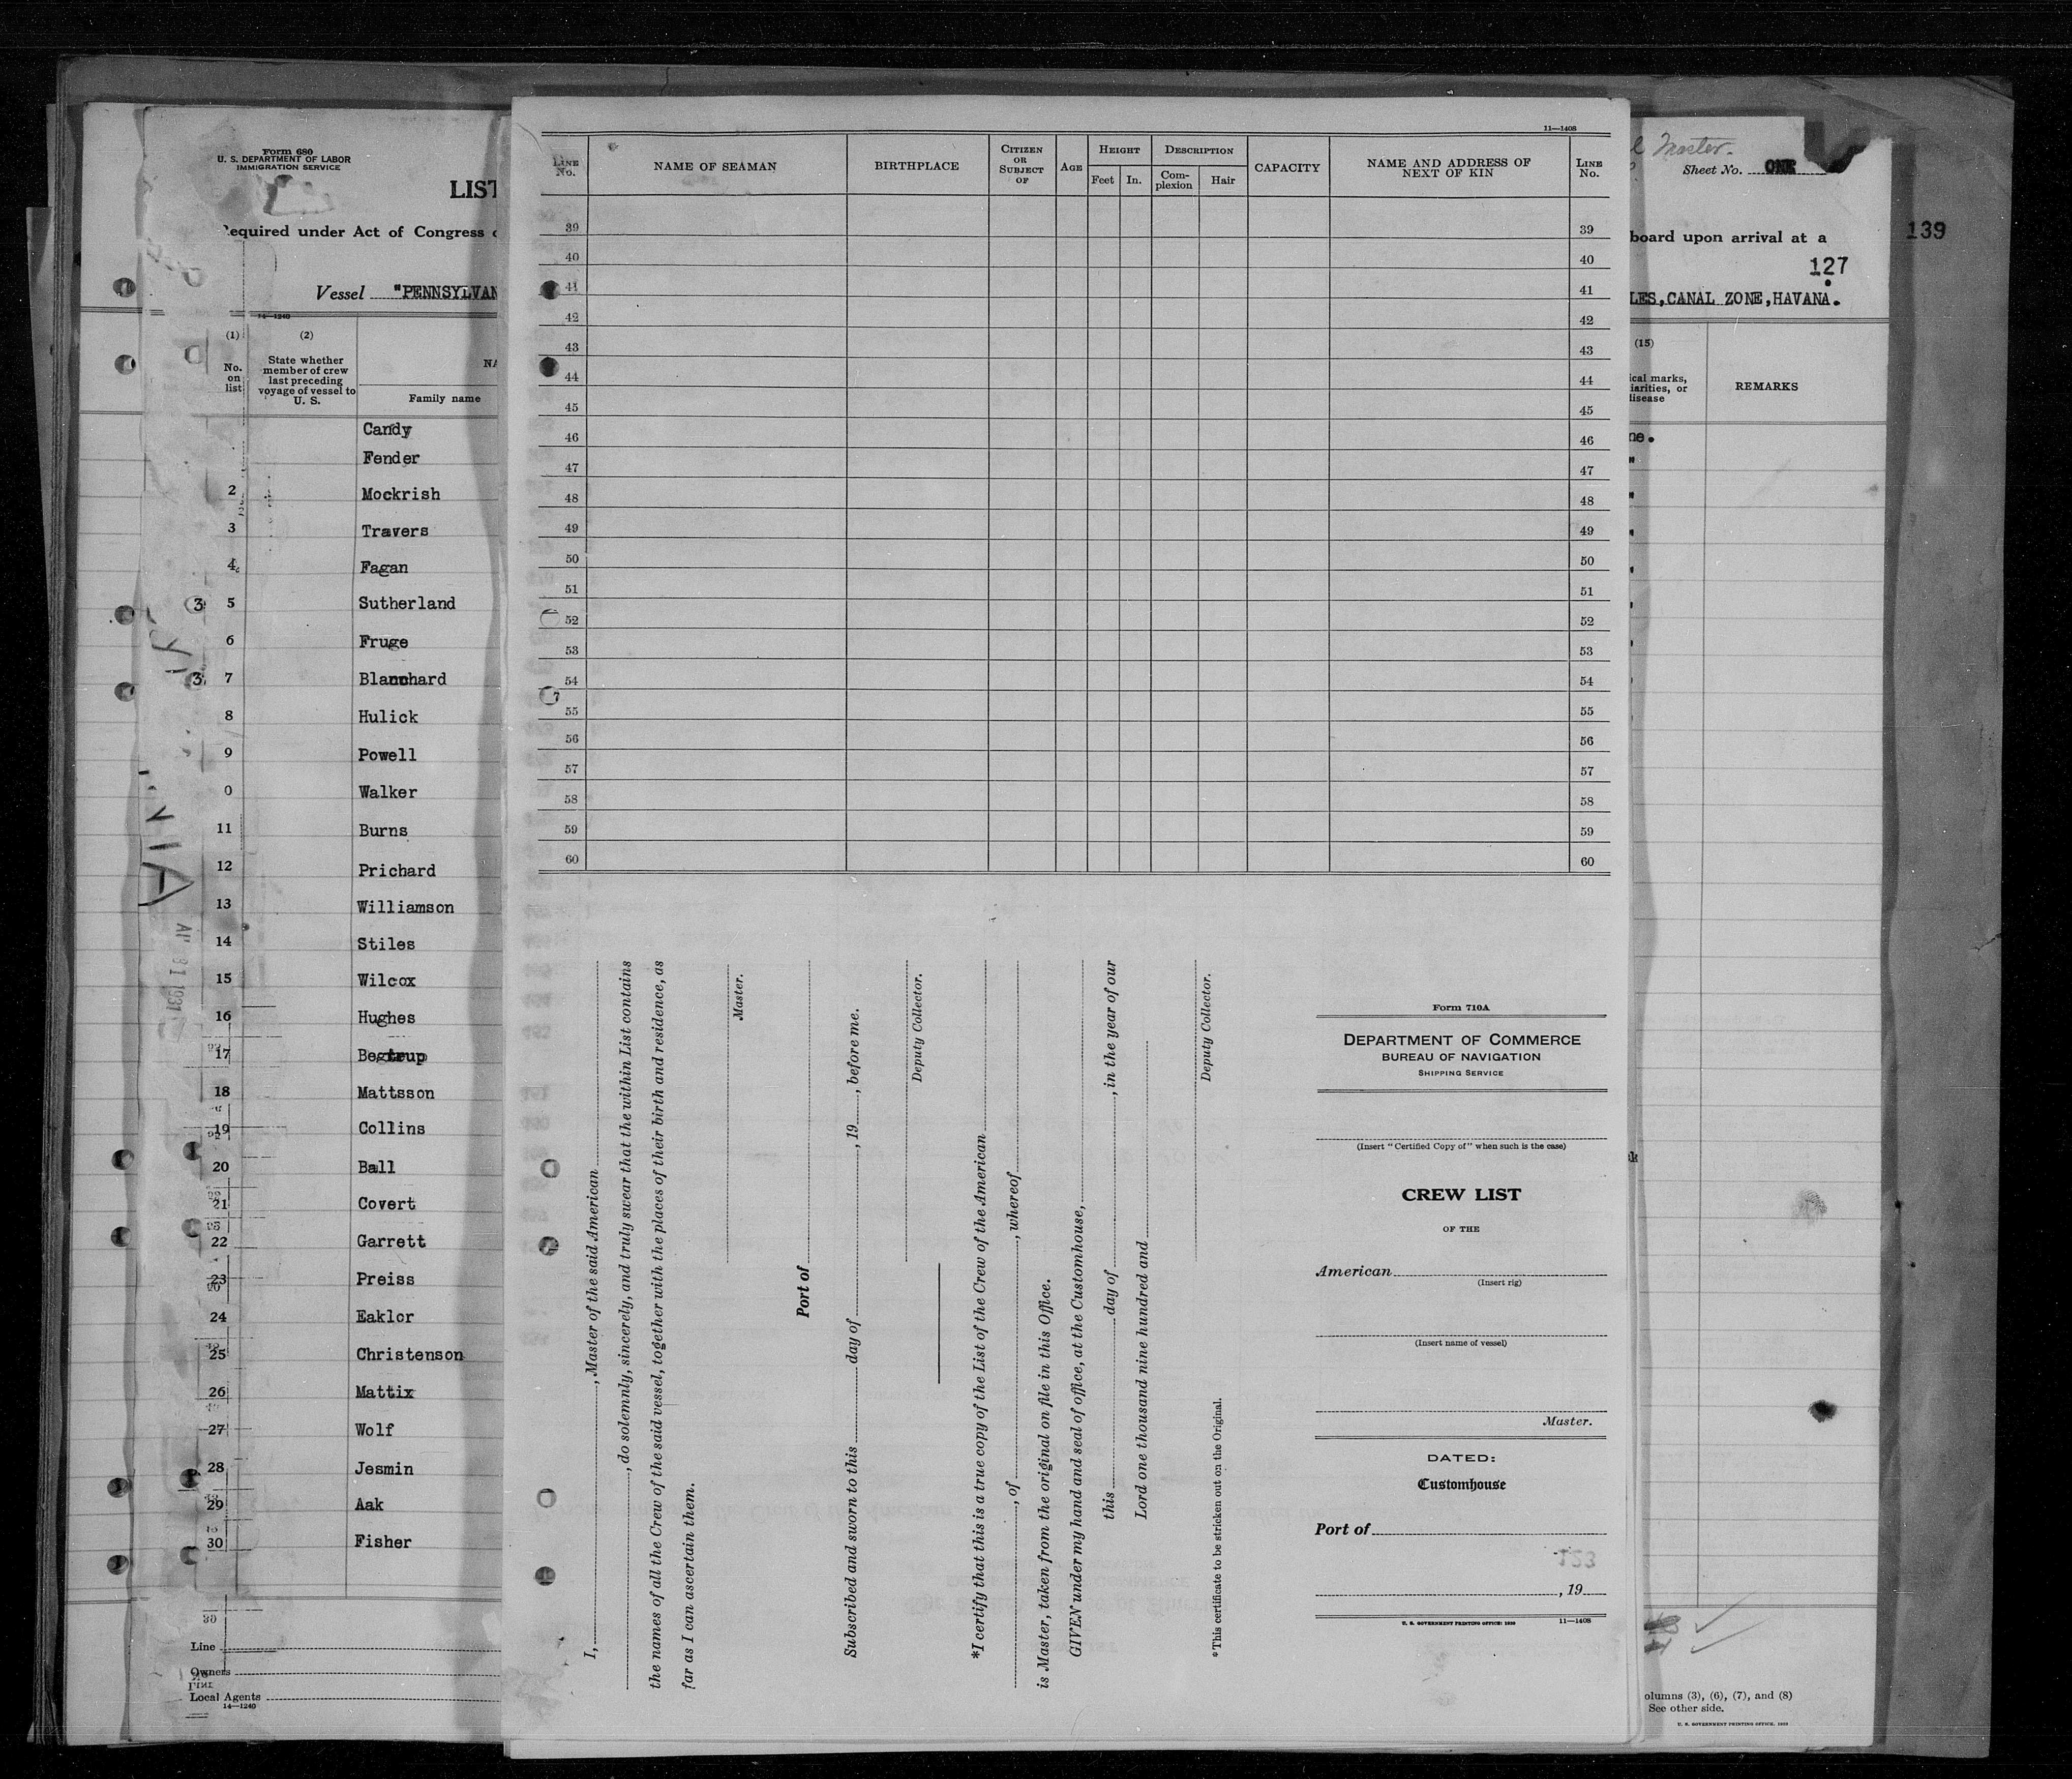 Form 680
U. S. DEPARTMENT OF LABOR
IMMIGRATION SERVICE
LIST
Required under Act of Congress
Vessel "PENNSYLVAN
14—1240
(1)
(2)
No. on list
State whether member of crew last preceding voyage of vessel to U. S.
NA
Family name
Candy
Fender
2 Mockrish
3 Travers
4 Fagan
3 5 Sutherland
6 Fruge
3 7 Blanchard
8 Hulick
9 Powell
0 Walker
11 Burns
12 Prichard
13 Williamson
14 Stiles
15 Wilcox
16 Hughes
17 Begtrup
18 Mattsson
19 Collins
20 Ball
21 Covert
22 Garrett
23 Preiss
24 Eaklor
25 Christenson
26 Mattix
27 Wolf
28 Jesmin
29 Aak
30 Fisher
30
Line
Owners
Local Agents
14—1240
1931
11—1408
LINE No.
NAME OF SEAMAN
BIRTHPLACE
CITIZEN OR SUBJECT OF
AGE
HEIGHT
Feet
In.
DESCRIPTION
Complexion
Hair
CAPACITY
NAME AND ADDRESS OF NEXT OF KIN
LINE No.
39 39
40 40
41 41
42 42
43 43
44 44
45 45
46 46
47 47
48 48
49 49
50 50
51 51
52 52
53 53
54 54
55 55
56 56
57 57
58 58
59 59
60 60
I, , Master of the said American
, do solemnly, sincerely, and truly swear that the within List contains
the names of all the Crew of the said vessel, together with the places of their birth and residence, as
far as I can ascertain them.
Master.
Port of
Subscribed and sworn to this day of , 19 , before me.
Deputy Collector.
*I certify that this is a true copy of the List of the Crew of the American
, of , whereof
is Master, taken from the original on file in this Office.
GIVEN under my hand and seal of office, at the Customhouse,
this day of , in the year of our
Lord one thousand nine hundred and
Deputy Collector.
*This certificate to be stricken out on the Original.
Form 710A
DEPARTMENT OF COMMERCE
BUREAU OF NAVIGATION
SHIPPING SERVICE
(Insert "Certified Copy of" when such is the case)
CREW LIST
OF THE
American
(Insert rig)
(Insert name of vessel)
Master.
DATED:
Customhouse
Port of
123
, 19
U. S. GOVERNMENT PRINTING OFFICE: 1930
11—1408
Master.
Sheet No. ONE
139
board upon arrival at a
127
LES, CANAL ZONE, HAVANA.
(15)
ical marks,
iarities, or
disease
REMARKS
ne.
olumns (3), (6), (7), and (8)
See other side.
U. S. GOVERNMENT PRINTING OFFICE,